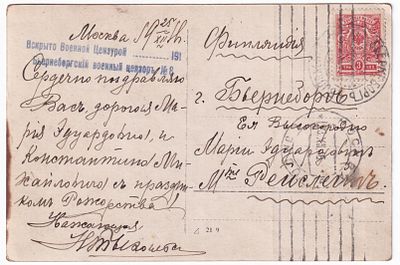 Москва 19 25/XII 16.
Вскрыто Военной Цензурой
191
Бьернеборгский военный цензор № 8
Сердечно поздравляю
Васъ, дорогая Ма-
рія Эдуардовна, и
Константина Ми-
хайловича съ праздни-
комъ Рождества!
Финляндія
г. Бьернеборгъ
Ея Высокородію
Маріи Эдуардовнѣ
Рейслигъ
МОСКВА
3
Δ 21 9